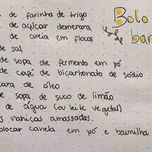 Bolo
de farinha de trigo
de açúcar demerara
de aveia em flocos
de sal
de sopa de fermento em pó
de café de bicarbonato de sódio
de óleo
de sopa de suco de limão
de água (ou leite vegetal)
amassadas.
canela em pó e baunilha